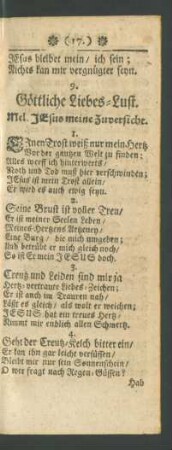 (17.)
JEsus bleibet mein/ ich sein;
Nichts kan mir vergnügter seyn.
9.
Göttliche Liebes-Lust.
Mel. JEsus meine Zuversicht.
1.
EInen Trost weiß nur mein Hertz
Vor der gantzen Welt zu finden;
Alles werff ich hinterwerts/
Noth und Tod muß hier verschwinden;
JEsus ist mein Trost allein/
Er wird es auch ewig seyn.
2.
Seine Brust ist voller Treu/
Er ist meiner Seelen Leben/
Meines Hertzens Artzeney/
Eine Burg/ die mich umgeben;
Und betrübt er mich gleich noch/
So ist Er mein JESUS doch.
3.
Creutz und Leiden sind mir ja
Hertz-vertraute Liebes-Zeichen;
Er ist auch im Trauren nah/
Läst es gleich/ als wolt er weichen;
JESUS hat ein treues Hertz/
Nimmt mir endlich allen Schmertz.
4.
Geht der Creutz-Kelch bitter ein/
Er kan ihn gar leicht versüssen/
Bleibt mir nur sein Sonnenschein/
O wer fragt nach Regen-Güssen?
Hab